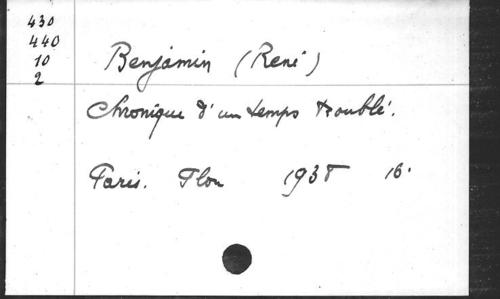 430
440
10
2
Benjamin (René)
Chronique d'un temps troublé.
Paris. Plon 1938 16.